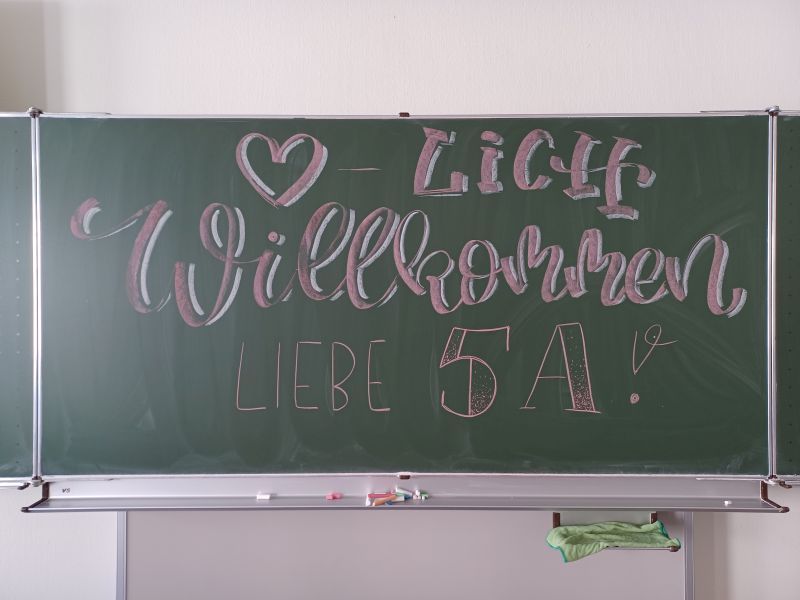 ♡ - LiCH
Willkommen
LIEBE 5A!